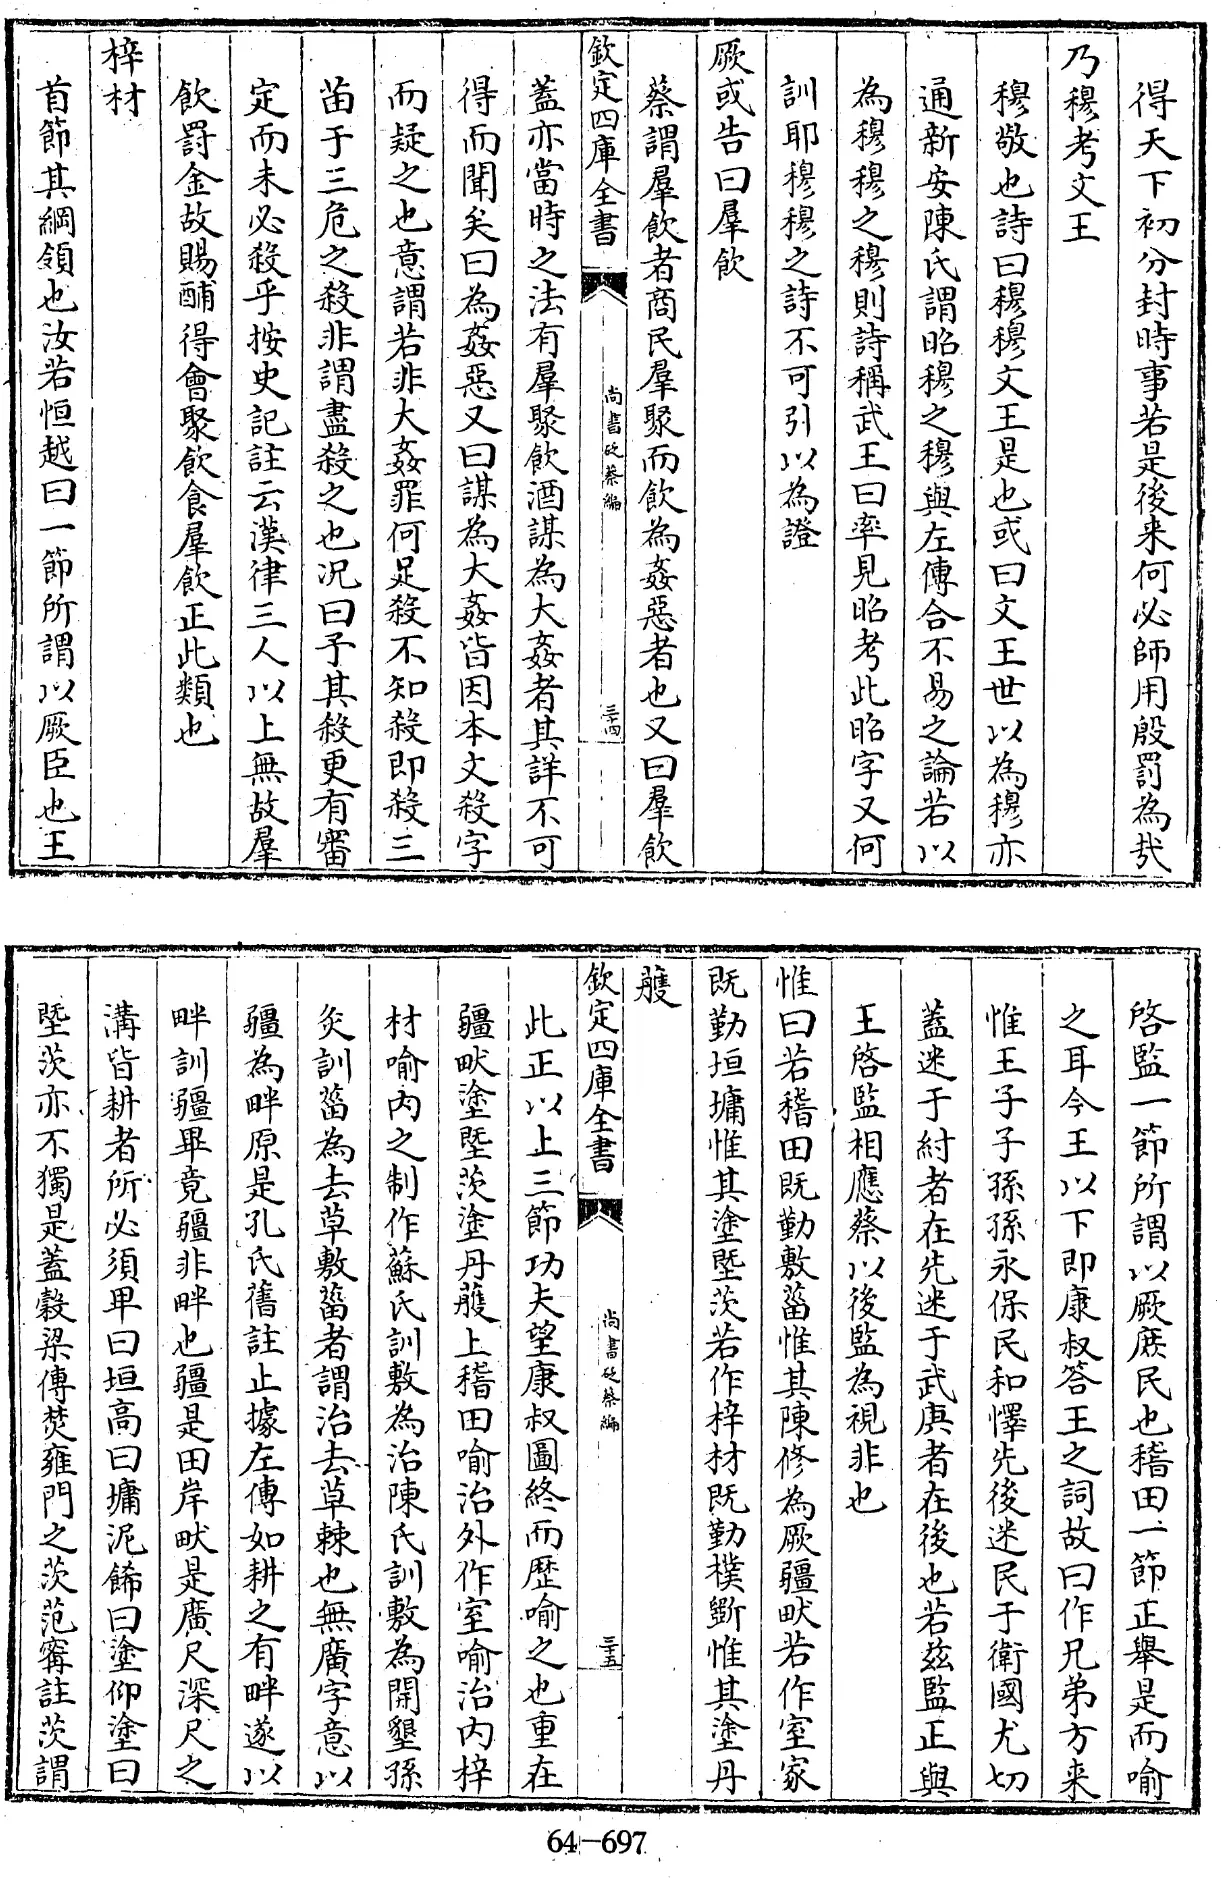 得天下初分封時事若是後来何必師用殷罰為哉
乃穆考文王
穆敬也詩曰穆穆文王是也或曰文王世以為穆亦
通新安陳氏謂昭穆之穆與左傳合不易之論若以
為穆穆之穆則詩稱武王曰率見昭考此昭字又何
訓耶穆穆之詩不可引以為證
厥或告曰羣飲
蔡謂羣飲者商民羣聚而飲為姦惡者也又曰羣飲
欽定四庫全書
尚書砭蔡編
三十四
蓋亦當時之法有羣聚飲酒謀為大姦者其詳不可
得而聞矣曰為姦惡又曰謀為大姦皆因本文殺字
而疑之也意謂若非大姦罪何足殺不知殺即殺三
苗于三危之殺非謂盡殺之也况曰予其殺更有審
定而未必殺乎按史記註云漢律三人以上無故羣
飲罰金故賜酺得會聚飲食羣飲正此類也
梓材
首節其綱領也汝若恒越曰一節所謂以厥臣也王
啓監一節所謂以厥庶民也稽田一節正舉是而喻
之耳今王以下即康叔答王之詞故曰作兄弟方来
惟王子子孫孫永保民和懌先後迷民于衛國尤切
蓋迷于紂者在先迷于武庚者在後也若兹監正與
王啓監相應蔡以後監為視非也
惟曰若稽田既勤敷菑惟其陳修為厥疆畎若作室家
既勤垣墉惟其塗塈茨若作梓材既勤樸斲惟其塗丹
雘
欽定四庫全書
尚書砭蔡編
三十五
此正以上三節功夫望康叔圖終而歷喻之也重在
疆畎塗塈茨塗丹雘上稽田喻治外作室喻治内梓
材喻内之制作蘇氏訓敷為治陳氏訓敷為開墾孫
炎訓菑為去草敷菑者謂治去草棘也無廣字意以
疆為畔原是孔氏舊註止據左傳如耕之有畔遂以
畔訓疆畢竟疆非畔也疆是田岸畎是廣尺深尺之
溝皆耕者所必須卑曰垣高曰墉泥餙曰塗仰塗曰
塈茨亦不獨是蓋穀梁傳焚雍門之茨范甯註茨謂
64-697